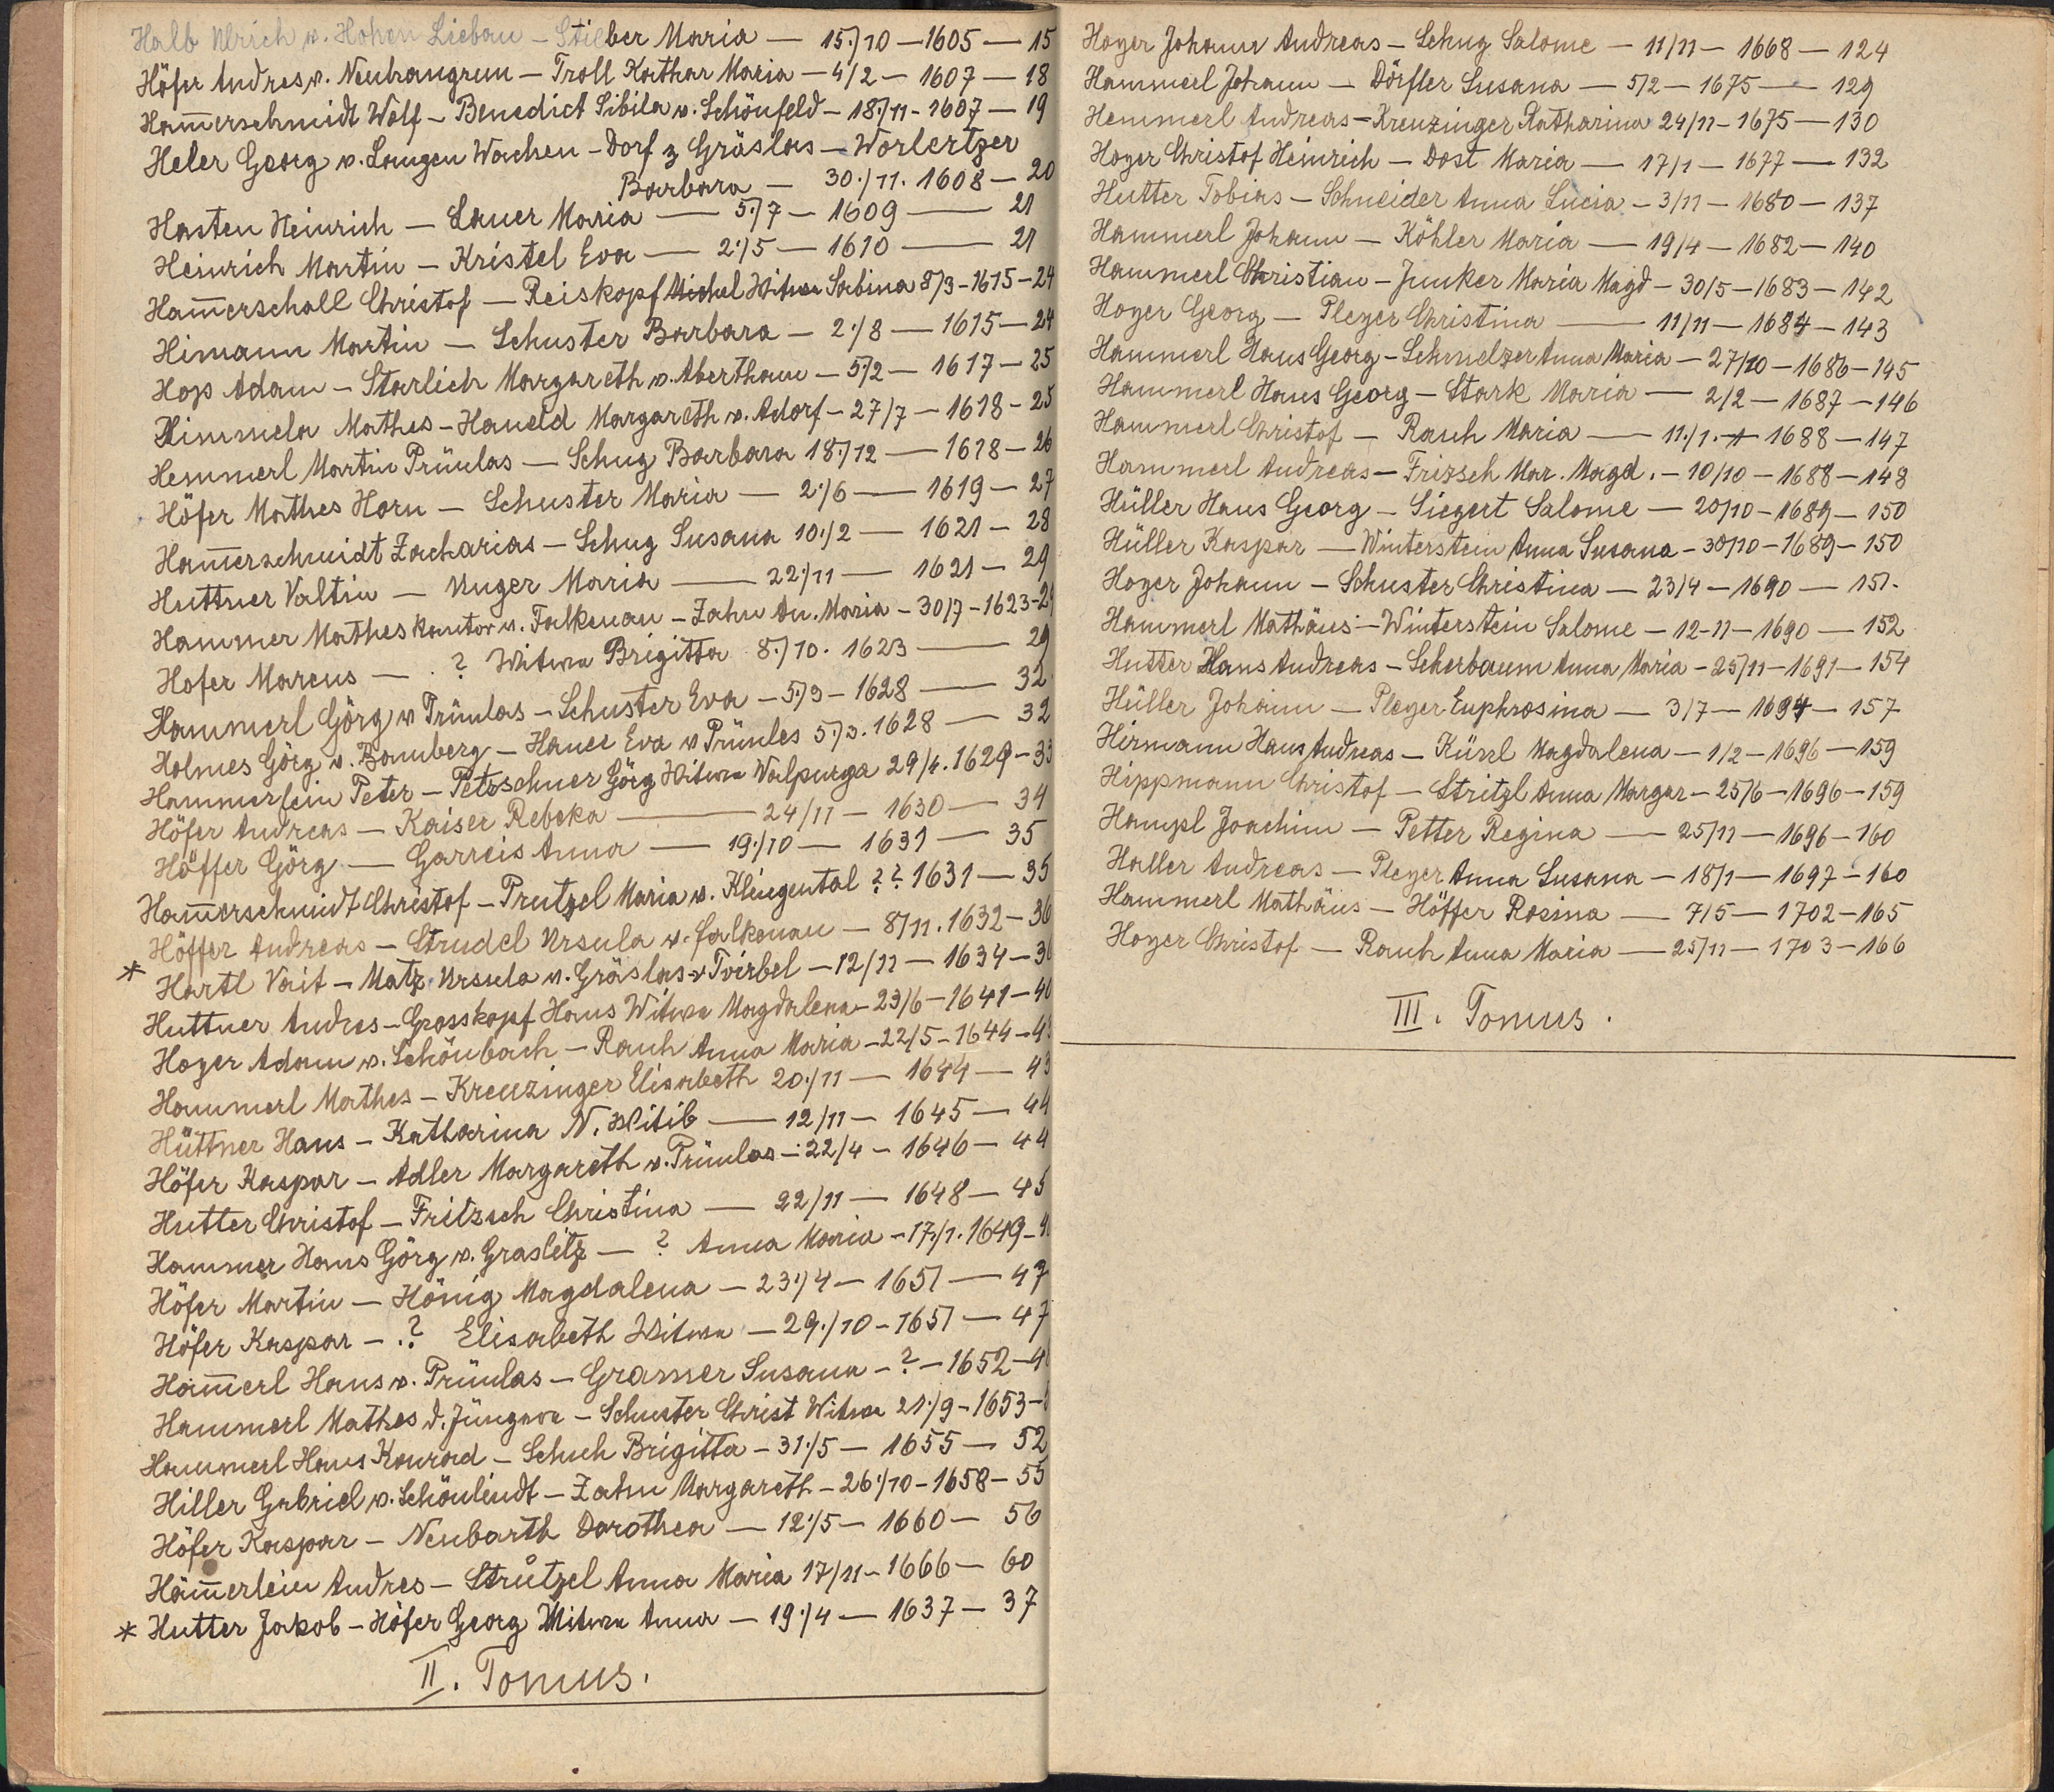 Halb Ulrich v. Hohen Liebau – Stieber Maria — 15./10 — 1605 — 15
Höfer Andres v. Neubrangrun – Troll Kathar Maria – 4/2 – 1607 — 18
Ham̅erschmidt Wolf – Benedict Sibila v. Schönfeld – 18./11 – 1607 — 19
Heler Georg v. Langen Wachen – Dorf z Gräslas – Worlertzer
Barbara — 30./11. 1608 – 20
Hasten Heinrich – Lauer Maria — 5./7 – 1609 — 21
Heinrich Martin – Kristel Eva — 2./5 – 1610 — 21
Ham̅erschall Christof – Reiskopf Michel Witwe Sabina 8/3 – 1615 – 24
Himann Martin – Schuster Barbara – 2./8 – 1615 – 24
Hop Adam – Starlich Margareth v. Abertham – 5./2 – 1617 – 25
Himmela Mathes – Haueld Margareth v. Adorf – 27/7 – 1618 – 25
Hemmerl Martin Prünlas – Schug Barbara 18./12 – 1618 – 26
Höfer Mathes Horn – Schuster Maria — 2./6 — 1619 – 27
Ham̅erschmidt Zacharias – Schug Susana 10./2 — 1621 – 28
Huttner Valtin – Unger Maria — 22./11 — 1621 – 29
Hammer Mathes kantor v. Falkenau – Zahn An. Maria – 30/7 – 1623 – 29
Hofer Marcus — . ? Witwe Brigitta 8./10. 1623 — 29
Hammerl Görg v Prünlas – Schuster Eva – 5./3 – 1628 — 32
Holmes Görg v. Bamberg – Hauer Eva v Prünles 5./3. 1628 — 32
Hammerlein Peter – Petzschner Görg Witwe Walpurga 29/4. 1629 – 33
Höfer Andreas – Kaiser Rebeka — 24/11 – 1630 — 34
Höffer Görg — Garreis Anna — 19./10 — 1631 — 35
Ham̅erschmidt Christof – Prutzel Maria v. Klingental ? ? 1631 — 35
Höffer Andreas – Strudel Ursula v. falkenau – 8/11. 1632 – 36
* Hartl Vait – Matz Ursula v. Gräslas v Tvirbel – 12/11 – 1634 – 36
Huttner Andres – Grosskopf Hans Witwe Magdalena – 23/6 – 1641 – 40
Hoyer Adam v. Schönbach – Rauh Anna Maria – 22/5 – 1644 – 43
Hammerl Mathes – Kreuzinger Elisabeth 20./11 — 1644 — 43
Hüttner Hans – Katharina N. Witib — 12/11 – 1645 — 44
Höfer Kaspar – Adler Margareth v. Prünlas – 22/4 – 1646 – 44
Hutter Christof – Fritzsch Christina — 22/11 — 1648 – 45
Hammer Hans Görg v. Graslitz — ? Anna Maria – 17./1. 1649 –
Höfer Martin – Hönig Magdalena – 23./4 – 1651 — 47
Höfer Kaspar – . ? Elisabeth Witwe – 29./10 – 1651 — 47
Ham̅erl Hans v. Prünlas – Gramer Susana – ? – 1652 –
Hammerl Mathes d. Jüngere – Schuster Christ Witwe 21./9 – 1653 –
Hammerl Hans Konrad – Schuh Brigitta – 31./5 – 1655 — 52
Hiller Gabriel v. Schönlindt – Zahn Margareth – 26./10 – 1658 – 55
Höfer Kaspar – Neubarth Dorothea — 12./5 – 1660 – 56
Häm̅erlein Andres – Strůtzel Anna Maria 17/11 – 1666 – 60
* Hutter Jakob – Höfer Georg Witwe Anna – 19./4 – 1637 – 37
II. Tomus.
Hoyer Johann Andreas – Schug Salome – 11/11 – 1668 – 124
Hammerl Johann – Dörfler Susana — 5/2 – 1675 — 129
Hemmerl Andreas – Kreuzinger Katharina 24/11 – 1675 – 130
Hoyer Christof Heinrich – Dost Maria — 17/1 – 1677 — 132
Hutter Tobias – Schneider Anna Lucia – 3/11 – 1680 – 137
Hammerl Johann – Köhler Maria — 19/4 – 1682 – 140
Hammerl Christian – Junker Maria Magd – 30/5 – 1683 – 142
Hoyer Georg – Pleyer Christina — 11/11 – 1684 – 143
Hammerl Hans Georg – Schmelzer Anna Maria – 27/10 – 1686 – 145
Hammerl Hans Georg – Stark Maria — 2/2 – 1687 – 146
Hammerl Christof – Rauh Maria — 11./1. – 1688 – 147
Hammerl Andreas – Frizsch Mar. Magd. – 10/10 – 1688 – 148
Hüller Hans Georg – Siegert Salome – 20/10 – 1689 – 150
Hüller Kaspar – Winterstein Anna Susana – 30/10 – 1689 – 150
Hoyer Johann – Schuster Christina – 23/4 – 1690 — 151.
Hammerl Mathäus – Winterstein Salome – 12 – 11 – 1690 — 152
Hutter Hans Andreas – Scherbaum Anna Maria – 25/11 – 1691 – 154
Hüller Johann – Pleyer Euphrosina — 3/7 – 1694 – 157
Hirmann Hans Andreas – Künzl Magdalena – 1/2 – 1696 – 159
Hippmann Christof – Stritzl Anna Margar – 25/6 – 1696 – 159
Hampl Joachim – Petter Regina — 25/11 – 1696 – 160
Haller Andreas – Pleyer Anna Susana – 18/1 – 1697 – 160
Hammerl Mathäus – Höffer Rosina — 7/5 – 1702 – 165
Hoyer Christof – Rauh Anna Maria — 25/11 – 1703 – 166
III. Tomus.